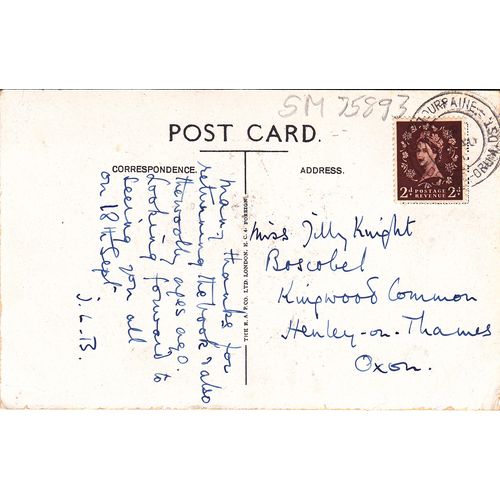 SM 75893
POST CARD.
CORRESPONDENCE.
ADDRESS.
many thanks for
returning the book & also
the woolly ages ago.
Looking forward to
seeing you all
on 18th Sept
J. L. B.
THE R.A. P. CO. LTD. LONDON, E.C.4
Miss Tilly Knight
Boscobel
Kingwood Common
Henley-on-Thames
Oxon.
2d POSTAGE REVENUE 2d